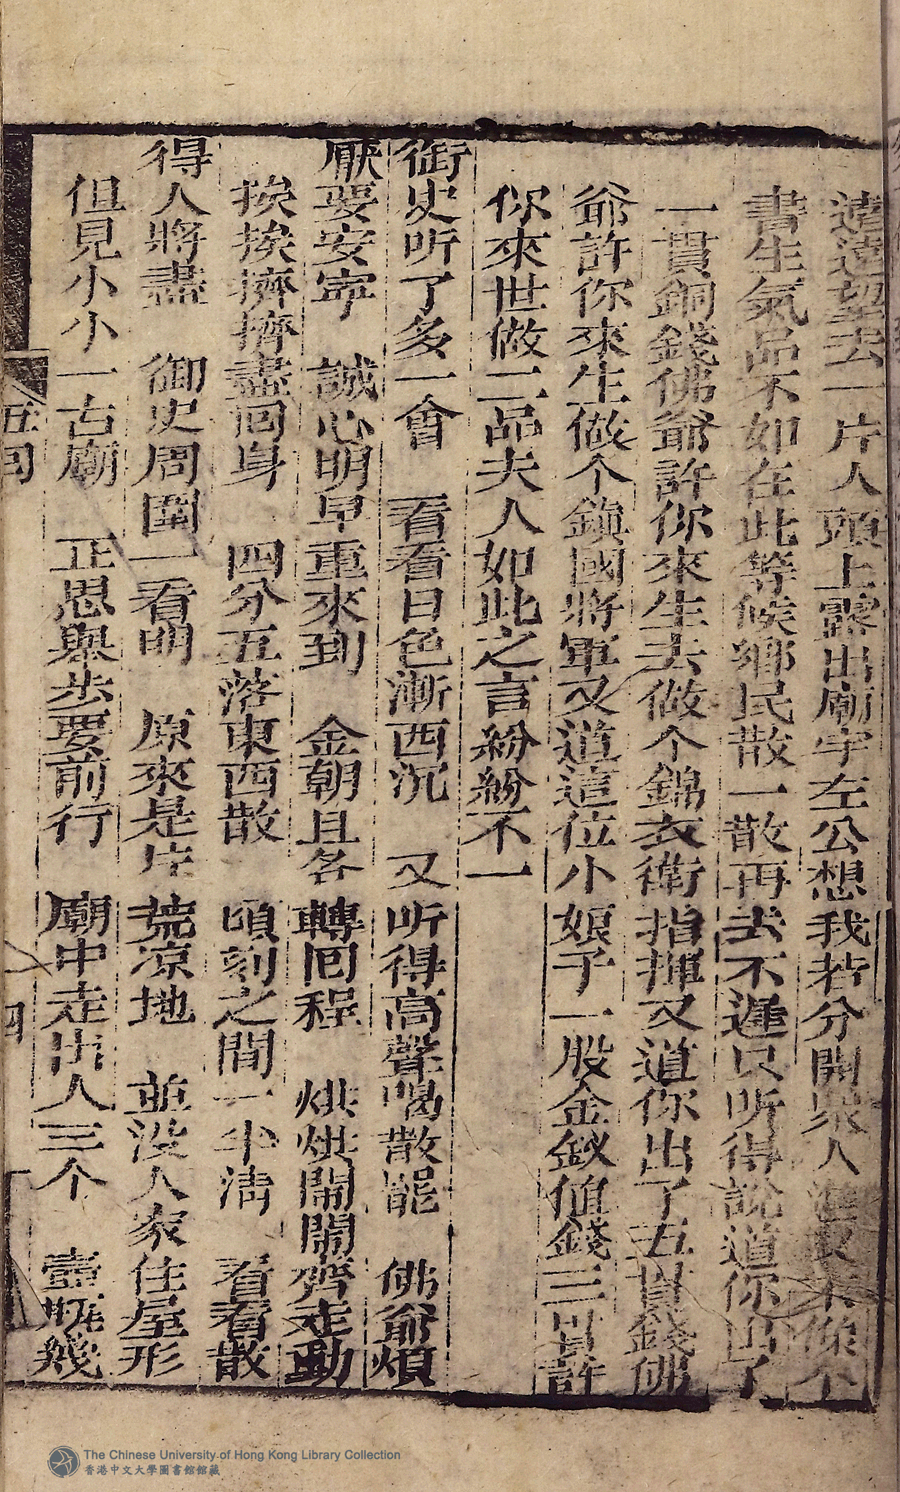 遠遠望去一片人頭上露出廟宇左公想我若分開眾人進去不像个
書生氣品不如在此等候鄉民散一散再去不遲只听得說道你出了
一貫銅錢佛爺許你來生去做个錦衣衛指揮又道你出了五貫錢佛
爺許你來生做个鎮國將軍又道這位小娘子一股金釵值錢三貫許
你來世做二品夫人如此之言紛紛不一
御史听了多一會　看看日色漸西沉　又听得高聲喝散罷　佛爺煩
厭要安寧　誠心明早重來到　金朝且各轉回程　烘烘鬧鬧齊走動
挨挨擠擠盡回身　四分五落東西散　頃刻之間一半清　看看散
得人將盡　御史周圍一看明　原來是片荒凉地　並没人家住屋形
但見小小一古廟　正思舉步要前行　廟中走出人三个　壺瓶幾
五回
四
The Chinese University of Hong Kong Library Collection
香港中文大學圖書館館藏